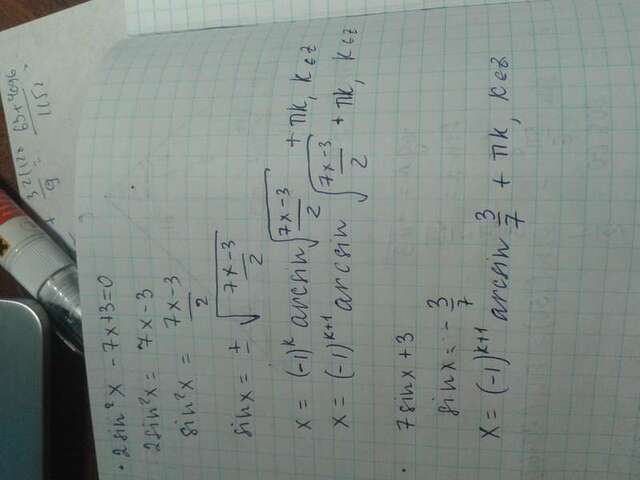 · 2sin²x - 7x+3=0
2sin²x = 7x-3
sin²x = (7x-3)/2
sinx = ± √((7x-3)/2)
x = (-1)ᵏ arcsin √((7x-3)/2) + πk, k∈z
x = (-1)ᵏ⁺¹ arcsin √((7x-3)/2) + πk, k∈z
· 7sinx + 3
sinx = -3/7
x = (-1)ᵏ⁺¹ arcsin 3/7 + πk, k∈z